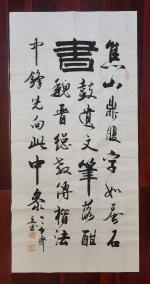 焦山鼎腹字如蚕石
書
鼓遺文筆落酣
魏晋總教傳楷法
中鋒先向此中参